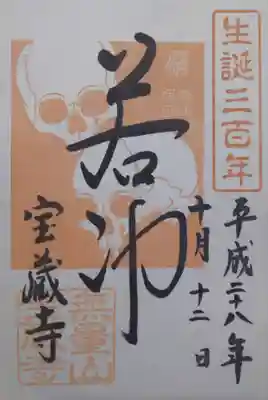 生誕三百年
平成二十八年
十月十二日
若冲
宝蔵寺
無量山